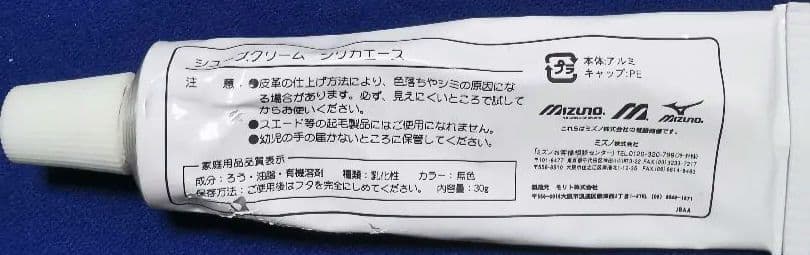 シューズクリーム シリカエース
注 意
●皮革の仕上げ方法により、色落ちやシミの原因にな
る場合があります。必ず、見えにくいところで試して
からお使いください。
●スエード等の起毛製品にはご使用になれません。
●幼児の手の届かないところに保管してください。
家庭用品品質表示
成分：ろう・油脂・有機溶剤 種類：乳化性 カラー：黒色
保存方法：ご使用後はフタを完全にしめてください。 内容量：30g
プラ
本体:アルミ
キャップ:PE
MIZUNO. M. MIZUNO.
これらはミズノ株式会社の登録商標です。
ミズノ株式会社
(ミズノお客様相談センター) TEL0120-320-799(フリーダイヤル)
製造元 モリト株式会社
JBAA